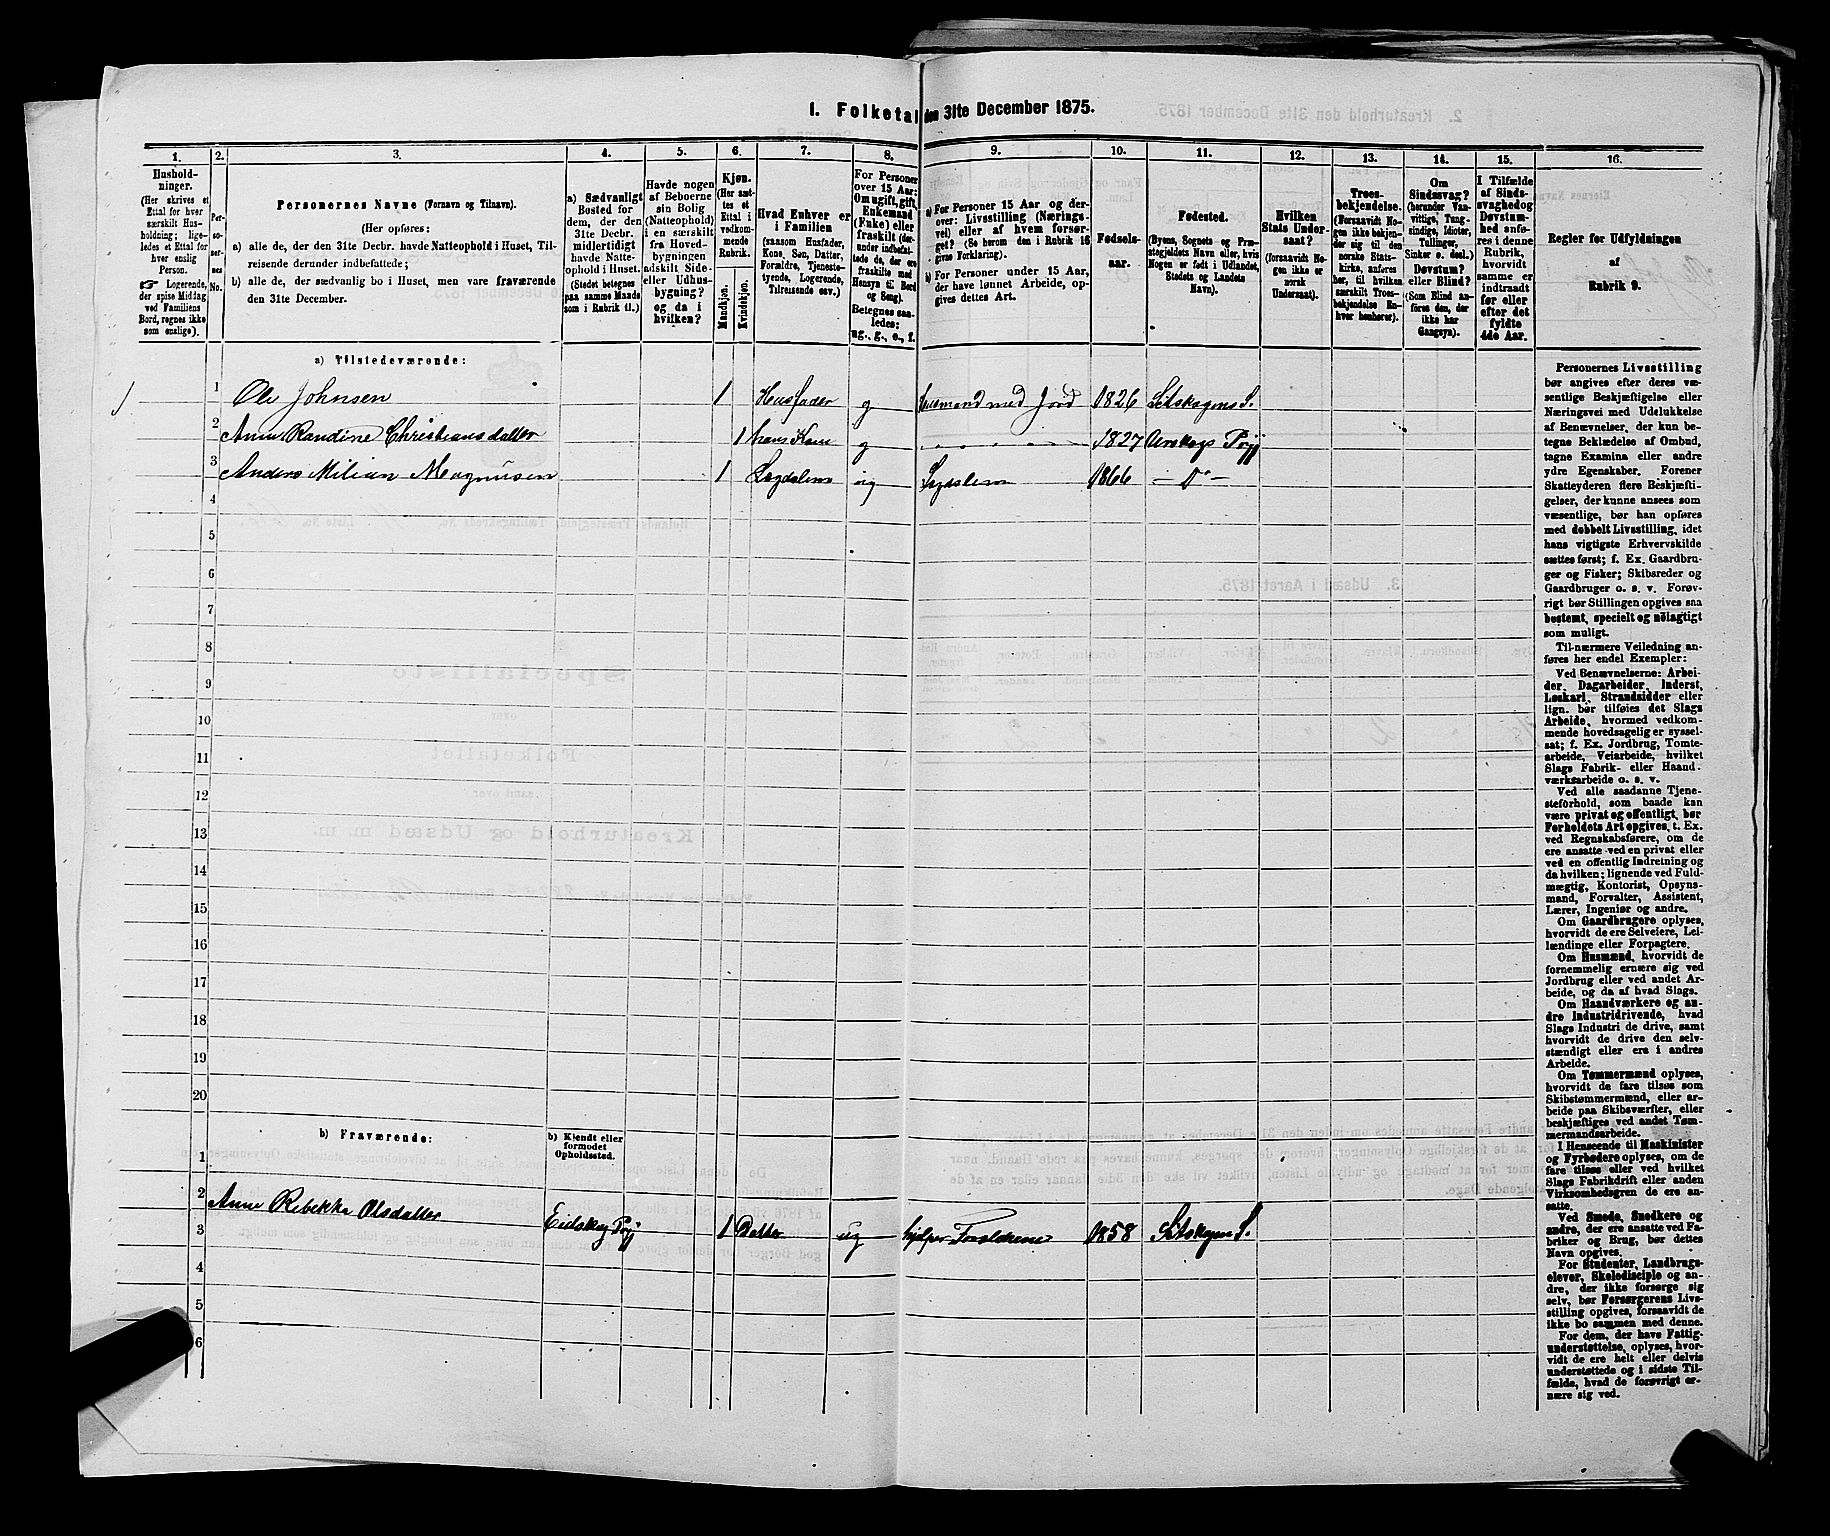 1. Folketal den 31te December 1875.
1. 2. 3. 4. 5. 6. 7. 8. 9. 10. 11. 12. 13. 14. 15. 16.
Husholdninger.
(Her skrives et
Ettal for hver
særskilt Husholdning;
ligeledes
et Ettal for
hver enslig
Person.
Logerende,
der spise Middag
ved Familiens
Bord, regnes ikke
som enslige).
Personernes
No.
Personernes Navne (Fornavn og Tilnavn).
(Her opføres:
a) alle de, der den 31te Decbr. havde Natteophold i Huset, Tilreisende
derunder indbefattede;
b) alle de, der sædvanlig bo i Huset, men vare fraværende
den 31te December.
a) Sædvanligt
Bosted for
dem, der den
31te Decbr.
midlertidigt
havde Natteophold
i Huset.
(Stedet betegnes
paa samme Maade
som i Rubrik 11.)
Havde nogen
af Beboerne
sin Bolig
(Natteophold)
i en særskilt
fra Hovedbygningen
adskilt Side-
eller Udhusbygning?
og da i
hvilken?
Kjøn.
(Her sættes
et
Ettal i
vedkommende
Rubrik.
Mandkjøn.
Kvindekjøn.
Hvad Enhver er
i Familien
(saasom Husfader,
Kone, Søn, Datter,
Forældre, Tjenestetyende,
Logerende,
Tilreisende osv.)
For Personer
over 15 Aar:
Om ugift, gift,
Enkemand
(Enke) eller
fraskilt
Betegnes saaledes:
ug., g., e., f.
a) For Personer 15 Aar og derover:
Livsstilling (Næringsvei)
eller af hvem forsørget?
(Se herom den i Rubrik 16
givne Forklaring).
b) For Personer under 15 Aar,
der have lønnet Arbeide, opgives
dettes Art.
Fødselsaar.
Fødested.
(Byens, Sognets og Præstegjeldets
Navn eller, hvis
Nogen er født i Udlandet,
Stedets og Landets
Navn).
Hvilken
Stats Undersaat?
(forsaavidt Nogen
ikke er
norsk
Undersaat).
Troesbekjendelse.
(Forsaavidt Nogen
ikke bekjender
sig til den
norske Statskirke,
anføres
her, til hvilken
særskilt Troesbekjendelse
Enhver
henhører).
Om
Sindssvag?
(herunder Vanvittige,
Tungsindige,
Idioter,
Tullinger,
Sinker o. desl.)
Døvstum?
eller Blind?
(Som Blind anføres
den, der
ikke har
Gangsyn).
I Tilfælde
af Sindssvaghed
og
Døvstumhed
anføres
i denne
Rubrik,
hvorvidt
samme er
indtraadt
før eller
efter det
fyldte
4de Aar.
Regler for Udfyldningen
af
Rubrik 9.
a) Tilstedeværende:
1 Ole Johnsen 1 Husfader g Husmand med Jord 1826 Sitskogens S.
2 Anne Randine Christiansdatter 1 hans Kone g " " " 1827 Urskogs Prgj
3 Anders Milian Magnusen 1 Lægdslem ug Lægdslem 1866 — Do —
4
5
6
7
8
9
10
11
12
13
14
15
16
17
18
19
20
b) Fraværende:
b) Kjendt eller
formodet
Opholdssted.
1
2
3 Anne Rebekka Olsdatter Eidskog Prgj 1 Datter ug hjelper Forældrene 1858 Sitskogens S.
4
5
6
Personernes Livsstilling
bør angives efter deres væsentlige
Beskjæftigelse eller
Næringsvei med Udelukkelse
af Benævnelser, der kun betegne
Beklædelse af Ombud,
tagne Examina eller andre
ydre Egenskaber. Forener
Skatteyderen flere Beskjæftigelser,
der kunne ansees som
væsentlige, bør han opføres
med dobbelt Livsstilling, idet
hans vigtigste Erhvervskilde
sættes først; f. Ex. Gaardbruger
og Fisker; Skibsreder og
Gaardbruger o. s. v. Forøvrigt
bør Stillingen opgives saa
bestemt, specielt og nöiagtigt
som muligt.
Til nærmere Veiledning anføres
her endel Exempler:
Ved Benævnelserne: Arbeider,
Dagarbeider, Inderst,
Løskarl, Strandsidder eller
lign. bør tilføies det Slags
Arbeide, hvormed vedkommende
hovedsagelig er sysselsat;
f. Ex. Jordbrug, Tomtearbeide,
Veiarbeide, hvilket
Slags Fabrik- eller Haandværksarbeide
o. s. v.
Ved alle saadanne Tjenesteforhold,
som baade kan
være privat og offentligt, bør
Forholdets Art opgives, t. Ex.
ved Regnskabsførere, om de
ere ansatte ved en privat eller
ved en offentlig Indretning og
da hvilken; lignende ved Fuldmægtig,
Kontorist, Opsynsmand,
Forvalter, Assistent,
Lærer, Ingeniør og andre.
Om Gaardbrugere oplyses,
hvorvidt de ere Selveiere, Leilændinge
eller Forpagtere.
Om Husmænd, hvorvidt de
fornemmelig ernære sig ved
Jordbrug eller ved andet Arbeide,
og da af hvad Slags.
Om Haandværkere og andre
Industridrivende, hvad
Slags Industri de drive, samt
hvorvidt de drive den selvstændigt
eller ere i andres
Arbeide.
Om Tømmermænd oplyses,
hvorvidt de fare tilsøs som
Skibstømmermænd, eller arbeide
paa Skibsværfter, eller
beskjæftiges ved andet Tømmermandsarbeide.
I Henseende til Maskinister
og Fyrbødere oplyses, om de
fare tilsøs eller ved hvilket
Slags Fabrikdrift eller anden
Virksomhedsgren de ere ansatte.
Ved Smede, Snedkere og
andre, der ere ansatte ved Fabriker
og Brug, bør dettes
Navn opgives.
For Studenter, Landbrugselever,
Skoledisciple og andre,
der ikke forsørge sig
selv, bør Forsørgerens Livsstilling
opgives, forsaavidt de
ikke bo sammen med denne.
For dem, der have Fattigunderstøttelse,
oplyses, hvorvidt
de ere helt eller delvis
understøttede og i sidste Tilfælde,
hvad de forøvrigt ernære
sig ved.